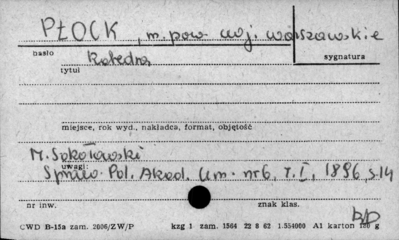 PŁOCK, m. pow. woj. warszawskie
hasło
Katedra
sygnatura
tytuł
miejsce, rok wyd., nakładca, format, objętość
M. Sokołowski
uwagi:
Spraw. Pol. Akad. Um. nr 6, T. I, 1896, s. 14
nr inw.
znak klas.
B/D
CWD B-15a zam. 2006/ZW/P kzg 1 zam. 1564 22 8 62 1.554000 A1 karton 180 g